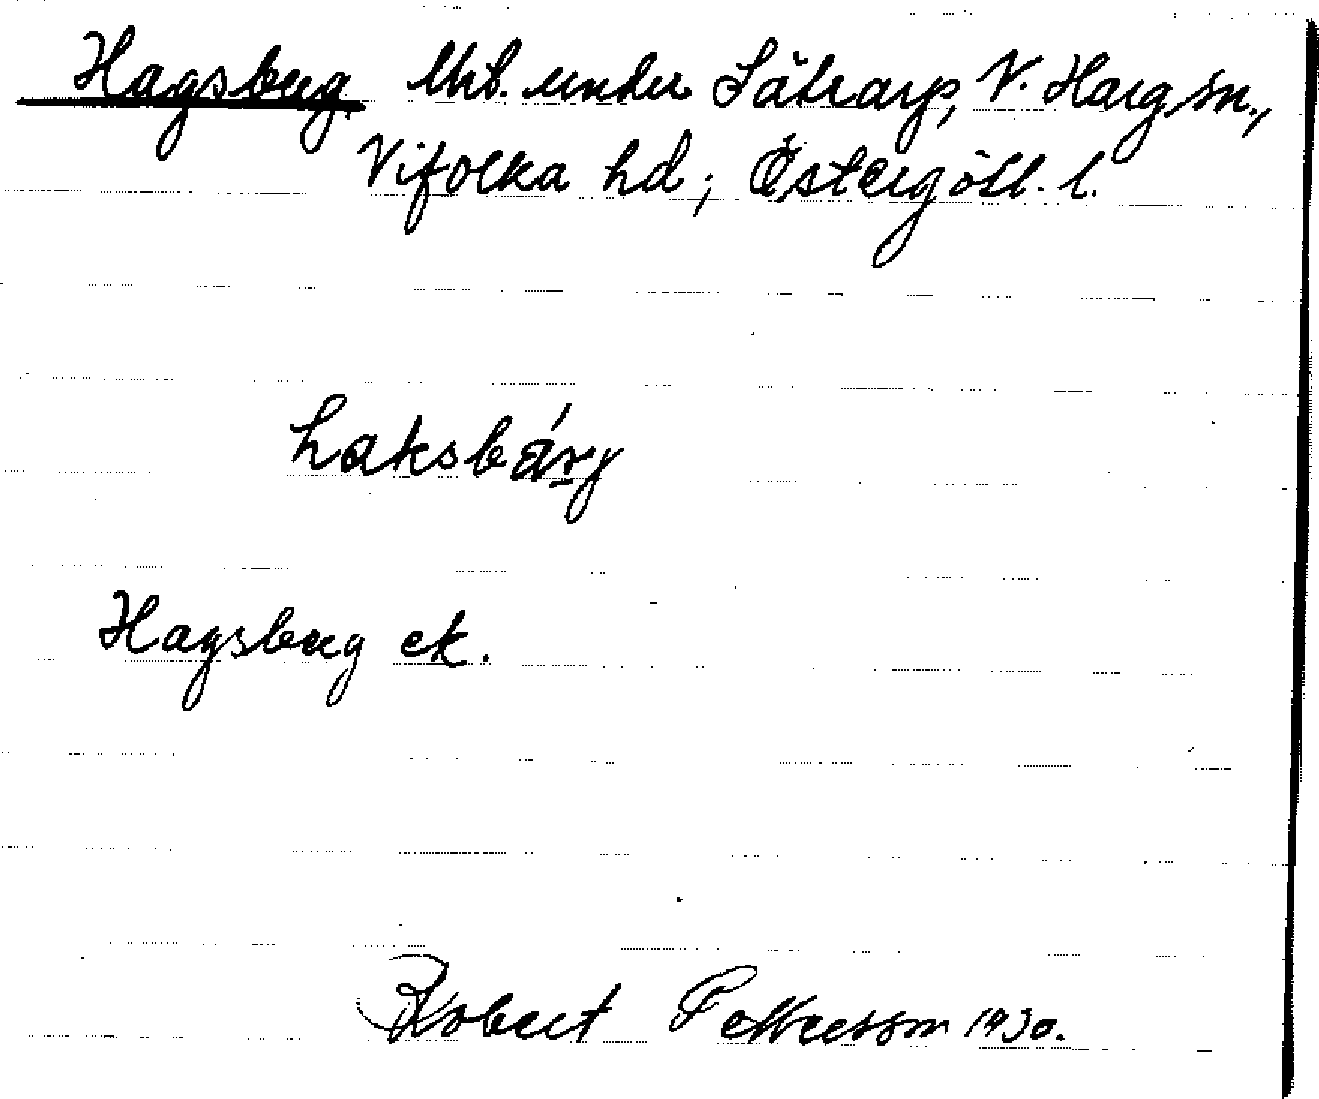 Hagsberg. Utb. under Sätrarp, V. Harg sn.,
Vifolka hd; Östergötl. l.
haksbárj
Hagsberg ek.
Robert Pettersson 1930.